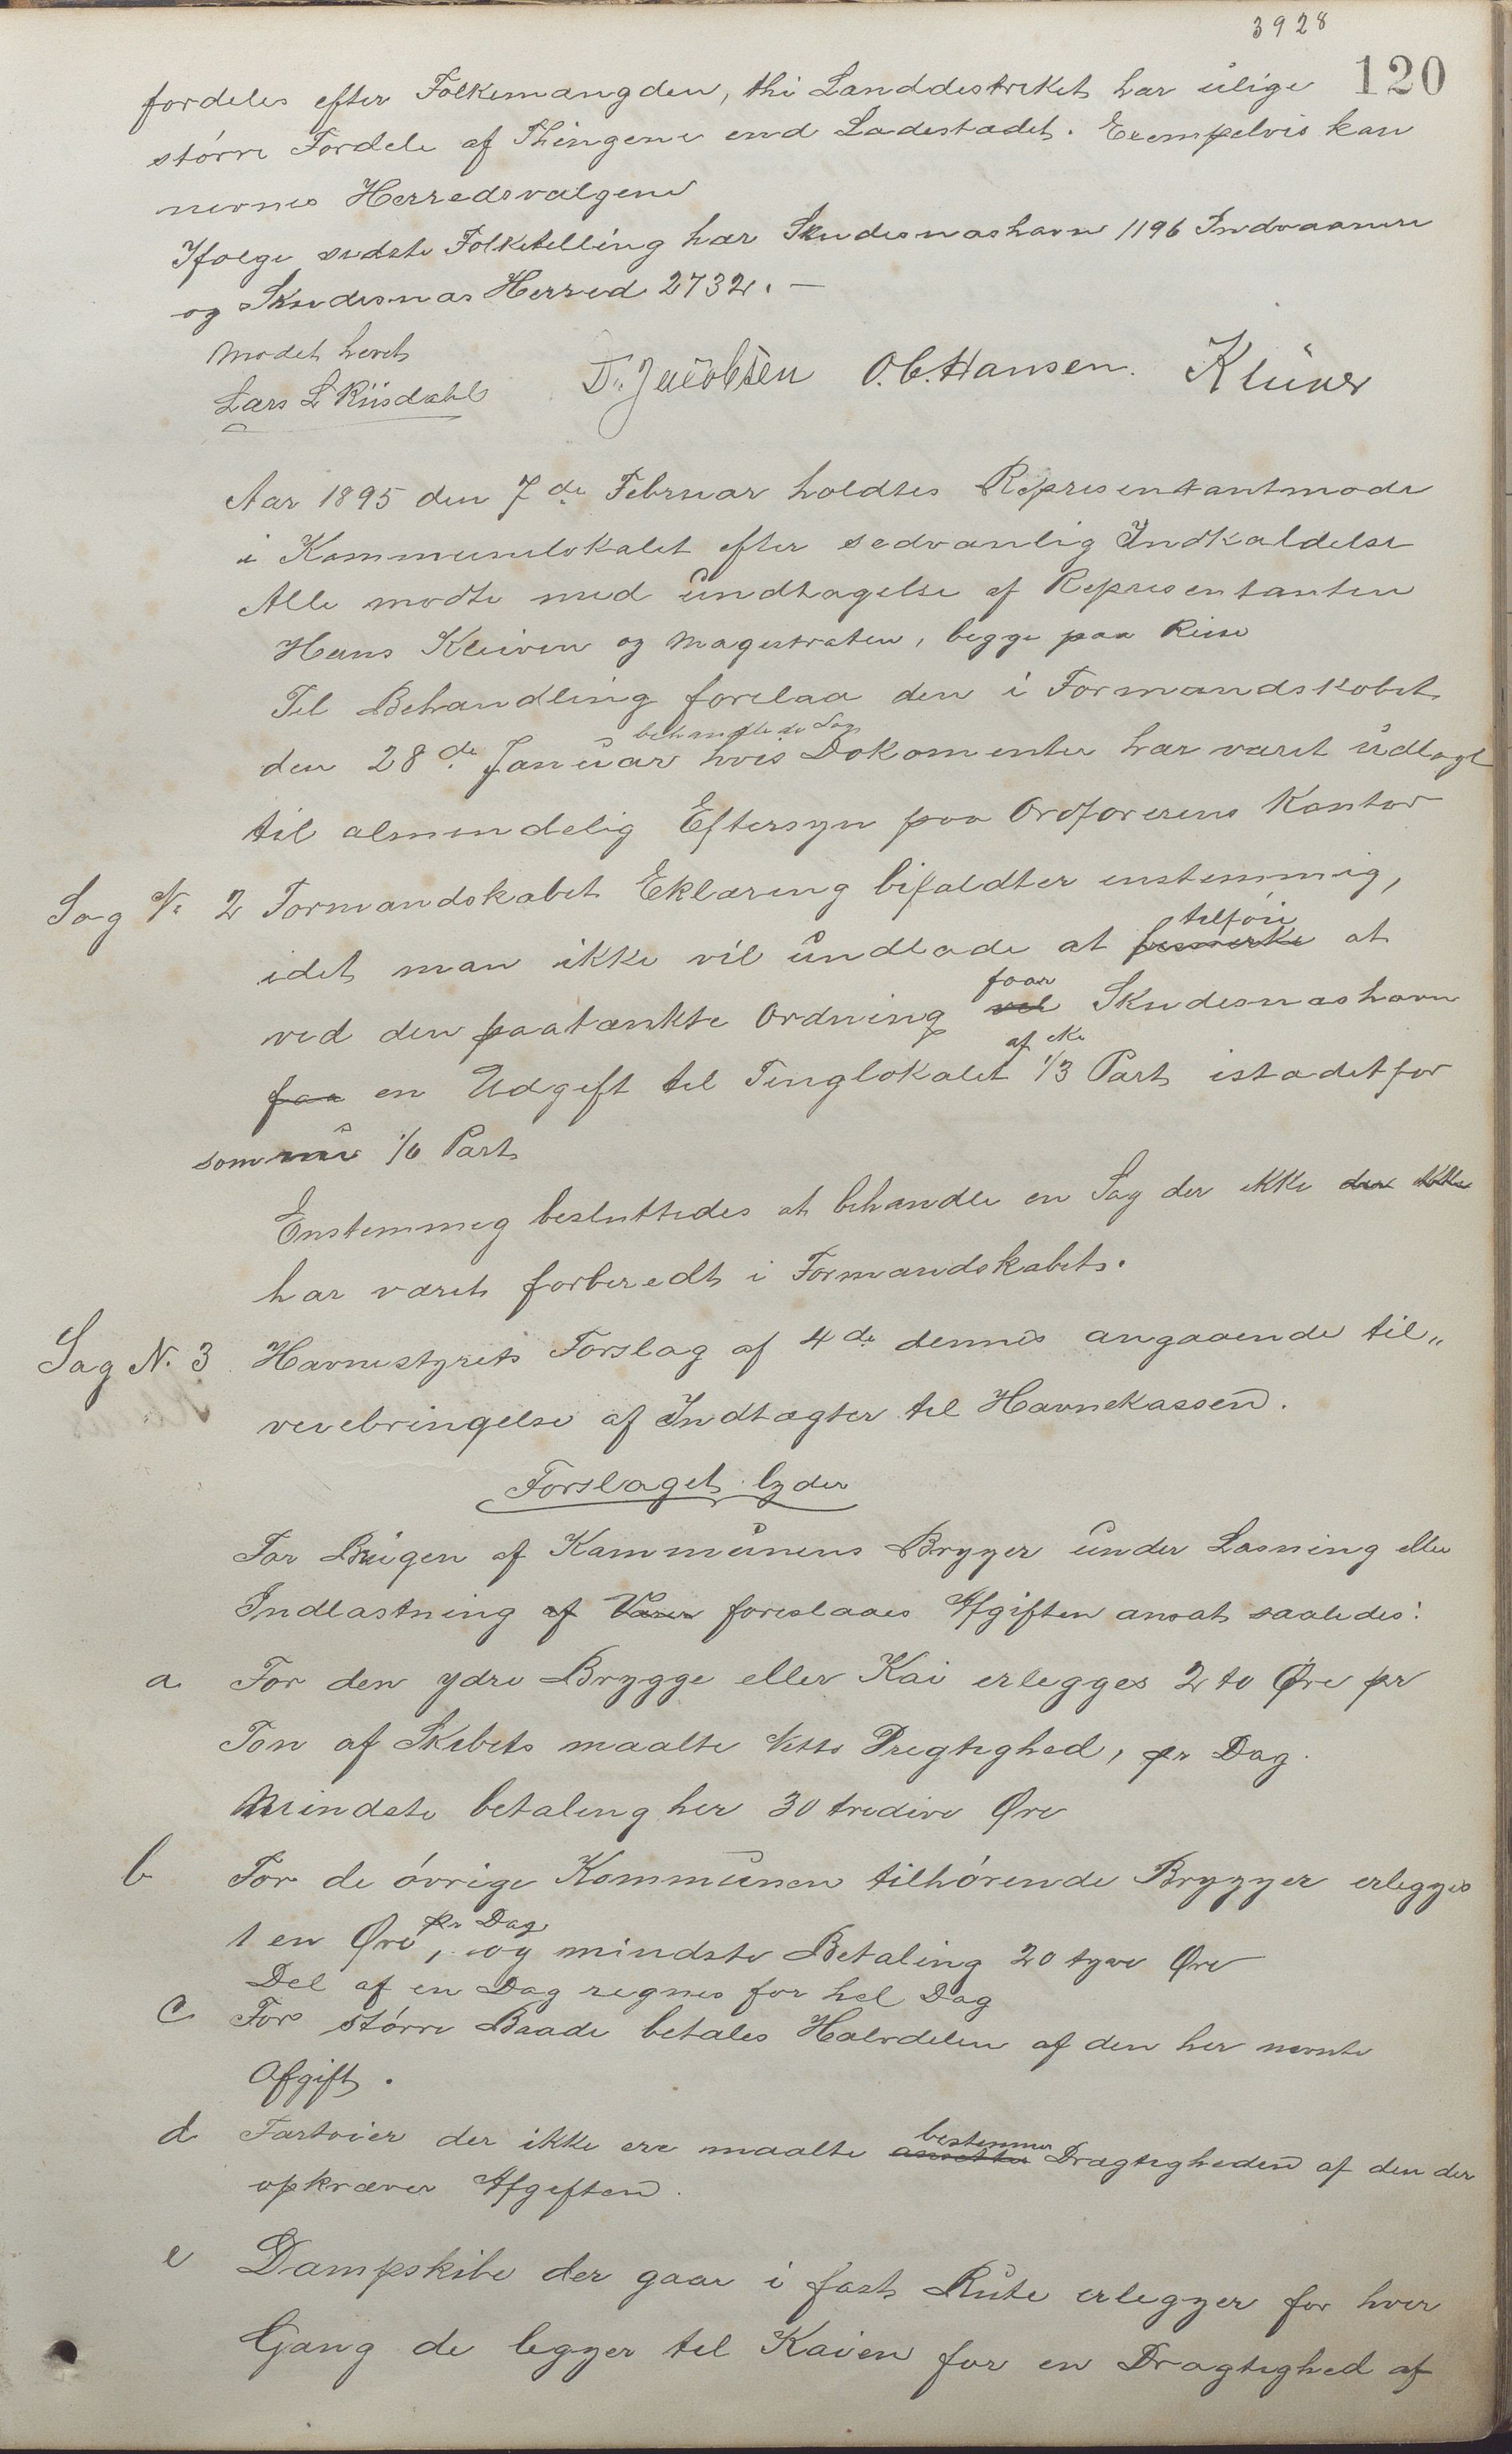 3928
120
fordeles efter Folkemængden, thi Landdistriktet har ulige
större Fordele af Thingene end Ladestædet. Exempelvis kan
nevnes Herredsvalgene
Ifølge sidste Folketelling har Skudesnæshavn 1196 Indvaanere
og Skudesnæs Herred 2732. —
Mødet hevet
Lars L Riisdahl T. Jacobsen O. C. Hansen. Klüver
Aar 1895 den 7de Februar holdtes Representantmøde
i Kommunelokalet efter sedvanlig Indkaldelse
Alle mødte med undtagelse af Representanten
Hans Kleiven og Magistraten, begge paa Reise
Til Behandling forelaa den i Formandskabet
behandlede Sag
den 28de Januar hvis Dokomenter har været udlagt
til almindelig Eftersyn paa Ordførerens Kontor
Sag N: 2 Formandskabet Eklæring bifaldter enstemmig,
tilföie
idet man ikke vil undlade at bemerke at
faar
ved den paatænkte Ordning vil Skudesnæshavn
af
faa en Udgift til Tinglokalet 1/3 Part istadetfor
som nu 1/6 Part
Enstemmig besluttedes at behandle en Sag der ikke der ikke
har været forberedt i Formandskabet.
Sag N. 3 Havnestyrets Forslag af 4de dennes angaaende til„
veiebringelse af Indtægter til Havnekassen.
Forslaget lyder
For Brugen af Kommunens Brygger under Losning eller
Indlastning af Varer foreslaaes Afgiften ansat saaledes:
a For den ydre Brygge eller Kai erlegges 2 to Øre pr
Ton af Skibets maalte Netto Dregtighed, pr Dag.
Mindste betaling her 30 tredive Øre
b For de övrige Kommunen tilhörende Brygger erlegges
pr Dag
1 en Øre, og mindste Betaling 20 tyve Øre
Del af en Dag regnes for hel Dag
c For större Baade betales Halvdelen af den her nevnte
Afgift.
bestemmes
d Fartøier der ikke ere maalte ansettes Drægtigheden af den der
opkræver Afgiften.
e Dampskibe der gaar i fast Rute erlegger for hver
Gang de legger til Kaien for en Drægtighed af